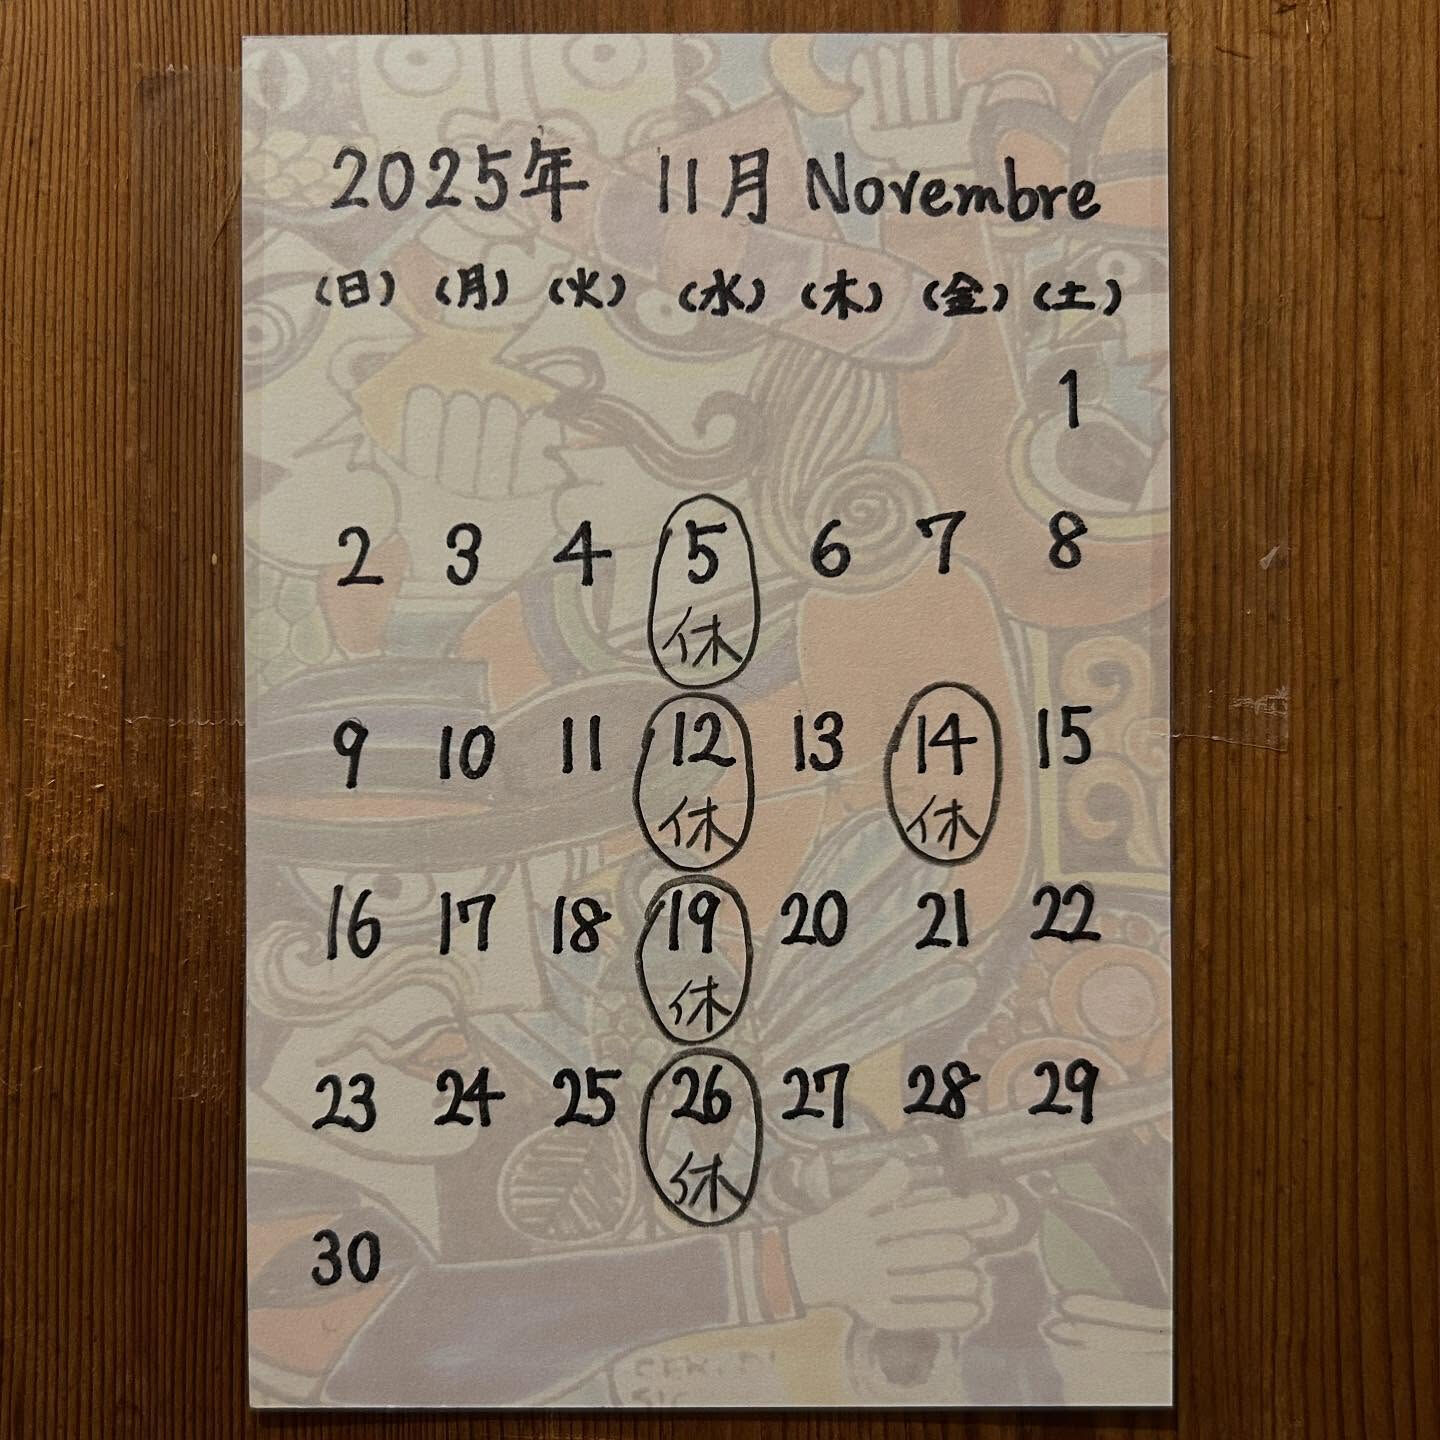 2025年 11月 Novembre
(日) (月) (火) (水) (木) (金) (土)
1
2 3 4 5 6 7 8
休
9 10 11 12 13 14 15
休 休
16 17 18 19 20 21 22
休
23 24 25 26 27 28 29
休
30